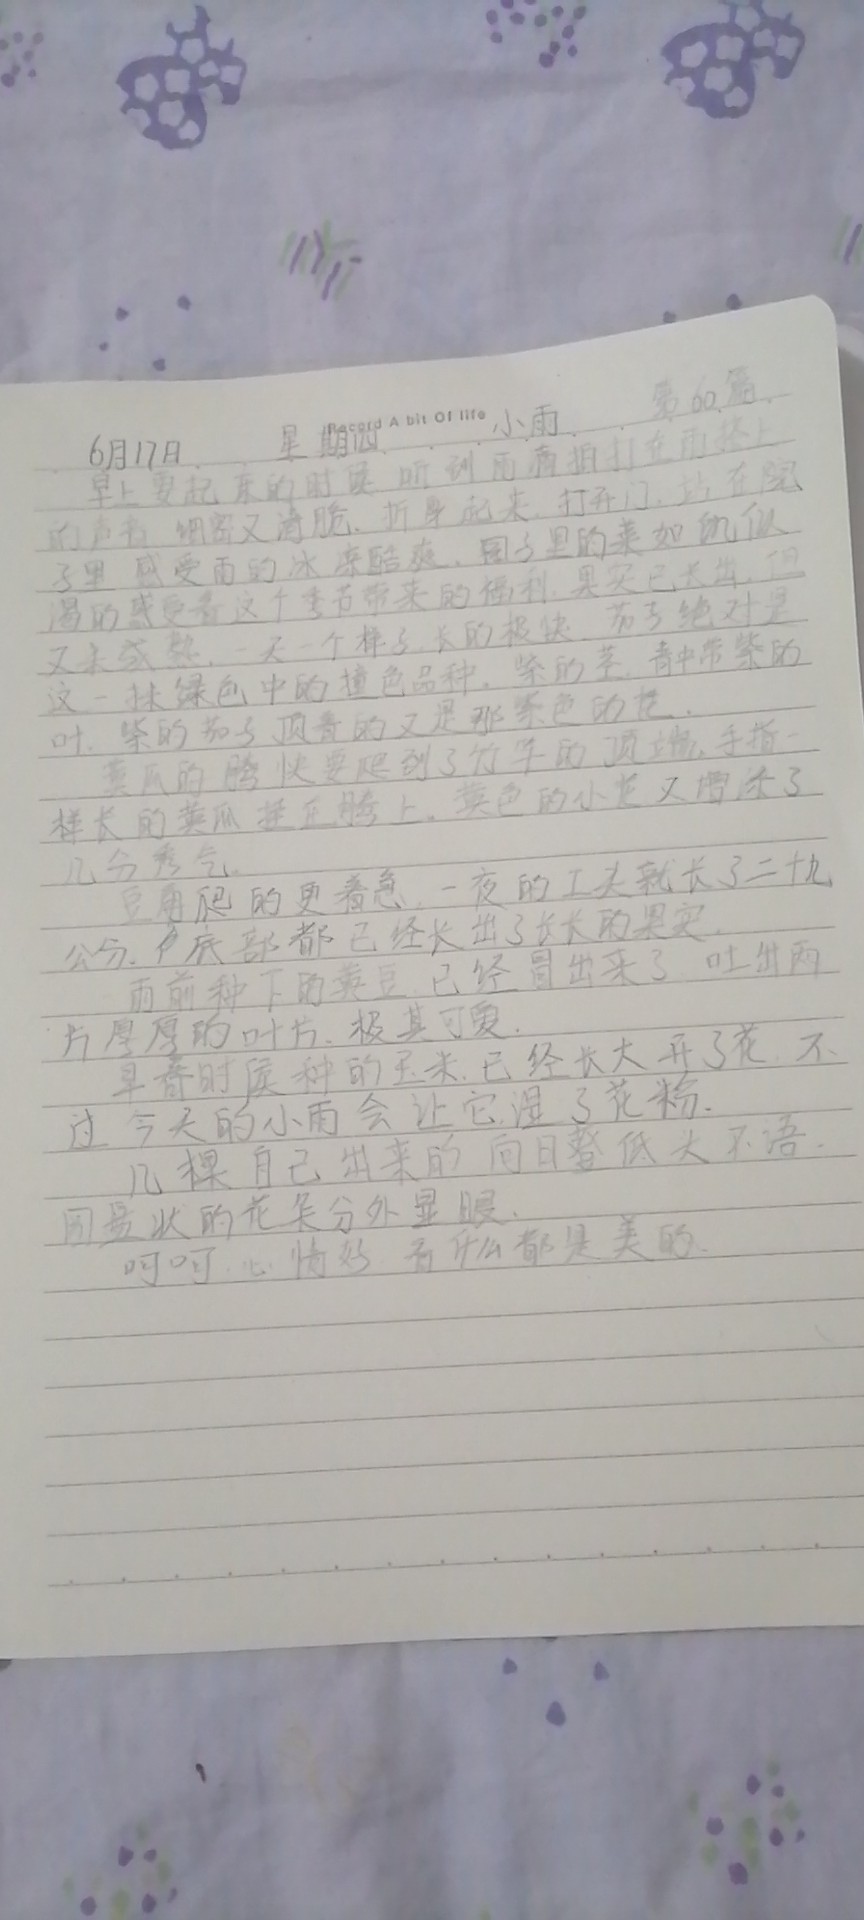 Record A bit Of life
6月17日 星期四 小雨 第60篇
早上要起床的时候 听到雨滴拍打在雨搭上
的声音 细密又清脆. 折身起来. 打开门. 站在院
子里 感受雨的冰凉酷爽. 园子里的菜如饥似
渴的感受着这个季节带来的福利. 果实已长出. 但
又未成熟. 一天一个样子. 长的极快. 茄子绝对是
这一抹绿色中的撞色品种. 紫的茎. 青中带紫的
叶. 紫的茄子 顶着的又是那紫色的花.
黄瓜的腾快要爬到了竹竿的顶端. 手指一
样长的黄瓜挂在腾上. 黄色的小花又增添了
几分秀气.
豆角爬的更着急. 一夜的工夫就长了二十九
公分. 底部都已经长出了长长的果实.
雨前种下的黄豆. 已经冒出来了 吐出两
片厚厚的叶片. 极其可爱.
早春时候种的玉米. 已经长大开了花. 不
过今天的小雨会让它湿了花粉.
几棵自己出来的向日葵低头不语.
圆盘状的花朵分外显眼.
呵呵. 心情好. 看什么都是美的.